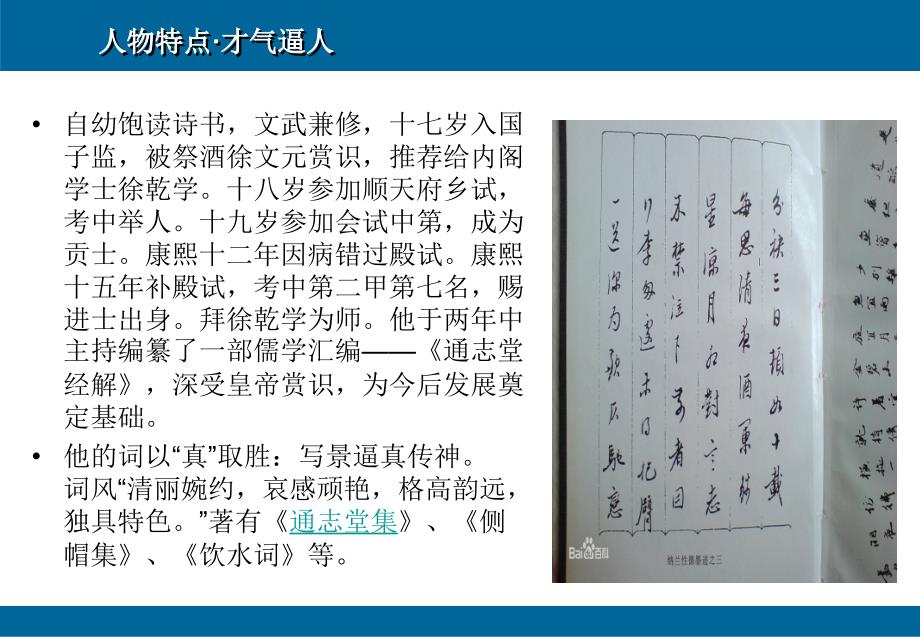 人物特点·才气逼人
• 自幼饱读诗书，文武兼修，十七岁入国
子监，被祭酒徐文元赏识，推荐给内阁
学士徐乾学。十八岁参加顺天府乡试，
考中举人。十九岁参加会试中第，成为
贡士。康熙十二年因病错过殿试。康熙
十五年补殿试，考中第二甲第七名，赐
进士出身。拜徐乾学为师。他于两年中
主持编纂了一部儒学汇编——《通志堂
经解》，深受皇帝赏识，为今后发展奠
定基础。
• 他的词以“真”取胜：写景逼真传神。
词风“清丽婉约，哀感顽艳，格高韵远，
独具特色。”著有《通志堂集》、《侧
帽集》、《饮水词》等。
分袂三日頓如十載
每思清夜酒
星涼月相對言志
不禁泣下
行李匆遽未得把臂
一送深为歉仄馳
Bai百科
纳兰性德墨迹之三